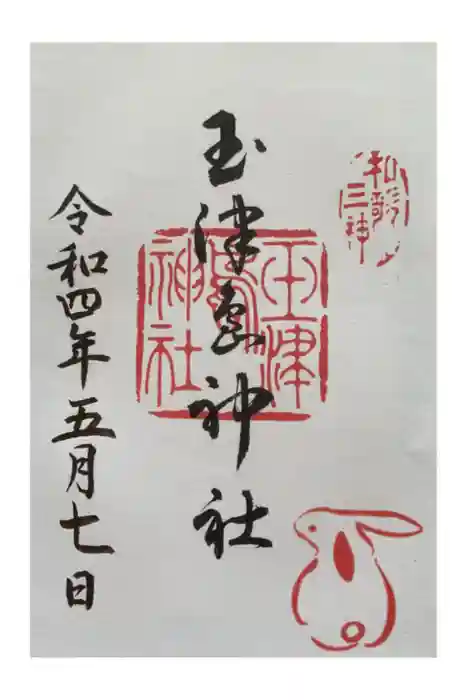 和歌三神
玉津島神社
玉津島神社
令和四年五月七日